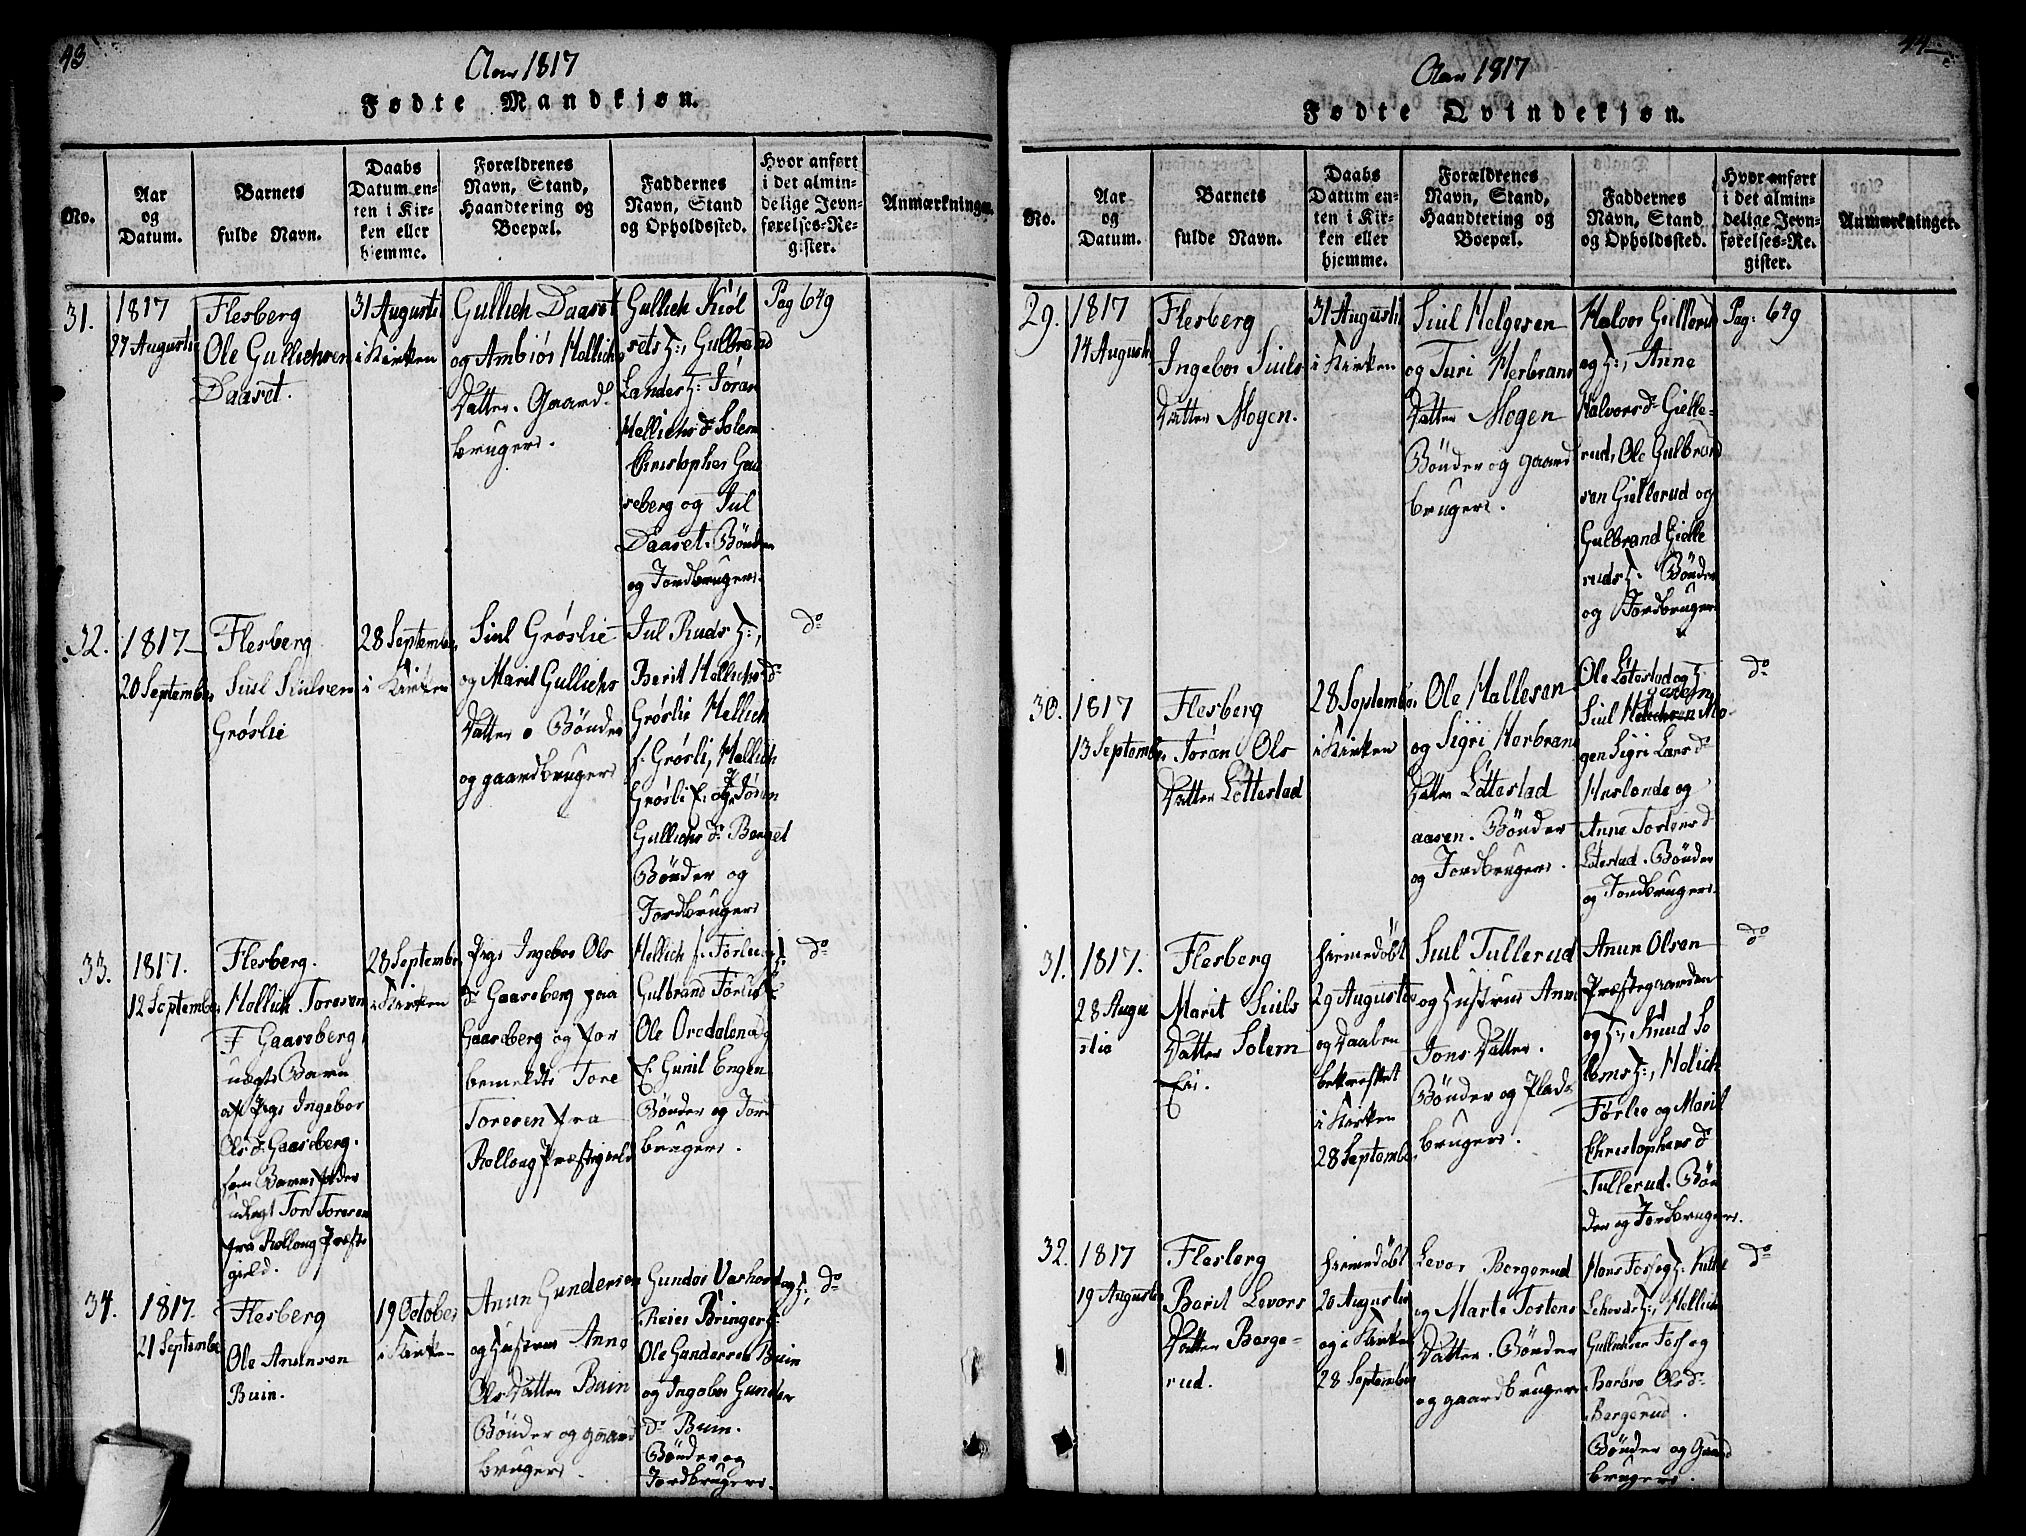 43
Aar 1817
Fødte Mandkjøn.
No.
Aar
og
Datum.
Barnets
fulde Navn.
Daabs
Datum en-
ten i Kir-
ken eller
hjemme.
Forældrenes
Navn, Stand,
Haandtering og
Boepæl.
Faddernes
Navn, Stand
og Opholdssted.
Hvor anført
i det almin-
delige Jevn-
førelses-Re-
gister.
Anmærkninger.
31.
1817
27 Augusti
Flesberg
Ole Gullichsen
Daaset.
31 Augusti
i Kirken
Gullich Daaset
og Ambiør Hellichs
Datter. Gaard
brugere.
Gullich Kiøl
sets H:, Gulbrand
Landes H: Jøran
Hellichs d. Solem
Christopher Gaa
seberg og Jul
Daaset. Bønder
og Jordbrugere.
Pag 649
32.
1817
20 September
Flesberg
Siul Siulsen
Grøslie
28 September
i Kirken
Siul Grøslie
og Marit Gullichs
Datter Bønder
og gaardbrugere
Jul Ruds H:,
Berit Hellichs d:
Grøslie Hellich
f. Grøsli, Hellich
Grøsli E. og Jøran
Gullichs d. Berget
Bønder og
Jordbrugere
do
33.
1817.
12 September
Flesberg.
Hellich Toresen
F Gaaseberg,
uægte Barn
af Pige Ingebor
Ols d. Gaaseberg.
som Barnefader
udlagt Tore Toresen
fra Rolloug Præste
gield.
28 September
i Kirken
Pige Ingebor Ols
d: Gaaseberg paa
Gaaseberg og for
bemeldte Tore
Toresen fra
Rolloug Præstegield
Hellich f. Førlie og H:
Gulbrand Førlie
Ole Oredalen og
E. Gunil Engen
Bønder og Jord
brugere.
do
34.
1817.
21 September
Flesberg
Ole Anunsen
Buin.
19 October
i Kirken
Anun Gundersen
og Hustrue Anne
Ols Datter Buin
Bønder og gaard
brugere.
Gunder Vashovd og H:,
Reier Bringer
Ole Gundersen Buin
og Ingebor Gunder
d: Buin.
Bønder og
Jordbrugere.
do
44
Aar 1817
Fødte Qvindekjøn.
No.
Aar
og
Datum.
Barnets
fulde Navn.
Daabs
Datum en-
ten i Kir-
ken eller
hjemme.
Forældrenes
Navn, Stand,
Haandtering og
Boepæl.
Faddernes
Navn, Stand
og Opholdssted.
Hvor anført
i det almin-
delige Jevn-
førelses-Re-
gister.
Anmærkninger.
29.
1817
14 Augusti
Flesberg
Ingebor Siuls
Datter Mogen.
31 Augusti
i Kirken
Siul Helgesen
og Turi Herbrans
Datter Mogen
Bønder og gaard
brugere.
Halvor Giellerud
og H:, Anne
Halvors d: Gielle-
rud, Ole Gulbrand
sen Giellerud og
Gulbrand Gielle
ruds H: Bønder
og Jordbrugere
Pag: 649
30.
1817
13 September
Flesberg
Jøran Ols
Datter Løttestad
28 September
i Kirken
Ole Hallesen
og Sigri Herbrans
Datter Løttestad
aasen. Bønder
og Jordbrugere.
Ole Løtestad og H.
Siul Helgesen Mo-
gen Sigri Lars d:
Huslende og
Anne Tostens d
Løtestad. Bønder
og Jordbrugere.
do
31.
1817.
28 Augu
stio
Flesberg
Marit Siuls
Datter Solem
Eie.
hiemedøbt
29 Augusti
og Daaben
bekræftet
i Kirken
28 September
Siul Tullerud
og Hustrue Anne
Jons Datter.
Bønder og Plads
brugere.
Anun Olsen
Præstegaarden
og H:, Knud So
lems H:, Helich
Førlie og Marit
Christophers d:
Tullerud. Bøn
der og Jordbrugere.
do
32.
1817
19 Augusti
Flesberg
Berit Levors
Datter Berge-
rud.
hiemedøbt
20 Augusti
og i Kirken
28 September
Levor Bergerud
og Marte Tostens
Datter. Bønder
og gaardbrugere
Hans Foss og H: Kittel
Lehovds H:, Hellich
Gullichsen Foss og
Barbro Ols d:
Bergerud.
Bønder og Gaard
brugere.
do